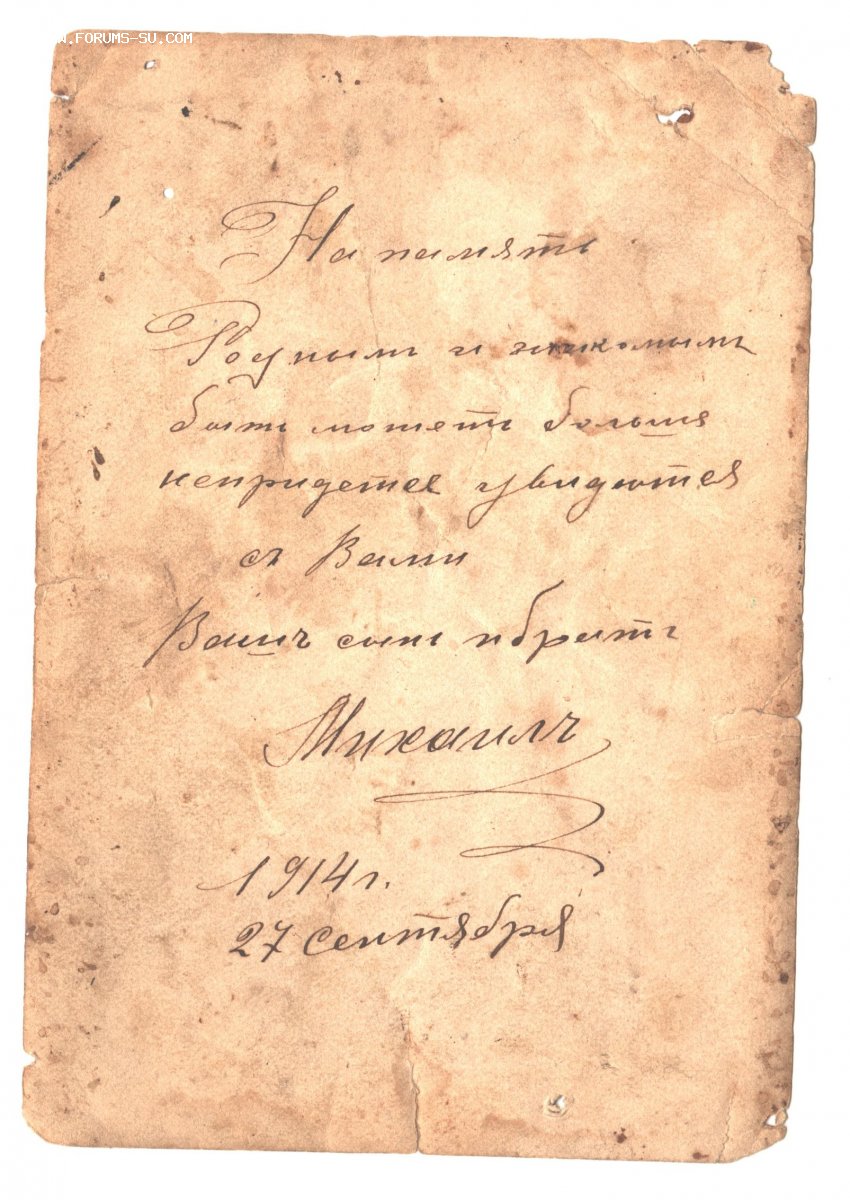 WWW.FORUMS-SU.COM
На память
Роднымъ и знакомымъ
быть можетъ больше
непридется увидются
съ Вами
Вашъ сынъ и братъ
Михаилъ
1914 г.
27 сентября